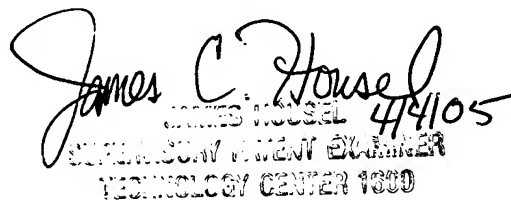 James C. Housel
JAMES HOUSEL 4/4/05
SUPERVISORY PATENT EXAMINER
TECHNOLOGY CENTER 1600